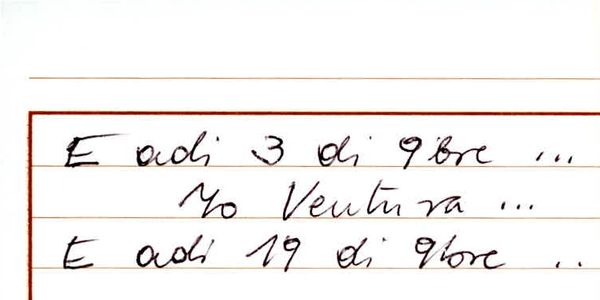 E adi 3 di 9bre ...
Mo Ventura ...
E adi 19 di 9bre ..